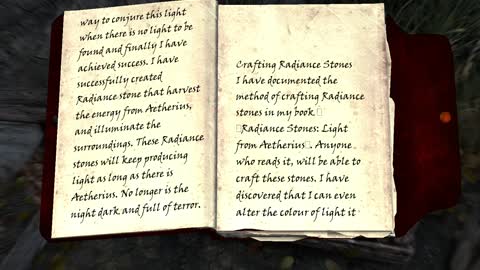 way to conjure this light
when there is no light to be
found and finally I have
achieved success. I have
successfully created
Radiance stone that harvest
the energy from Aetherius,
and illuminate the
surroundings. These Radiance
stones will keep producing
light as long as there is
Aetherius. No longer is the
night dark and full of terror.
Crafting Radiance Stones
I have documented the
method of crafting Radiance
stones in my book □
□Radiance Stones: Light
from Aetherius□. Anyone
who reads it, will be able to
craft these stones. I have
discovered that I can even
alter the colour of light it